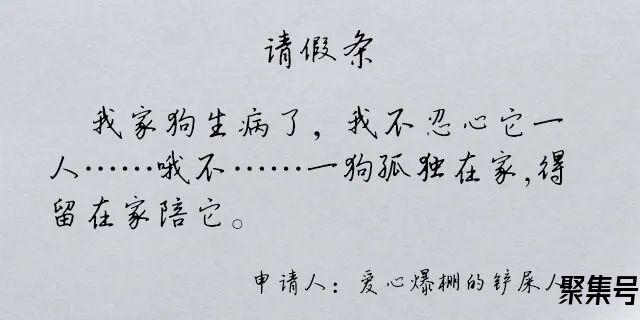 请假条
我家狗生病了，我不忍心它一
人……哦不……一狗孤独在家,得
留在家陪它。
申请人：爱心爆棚的铲屎人
聚集号